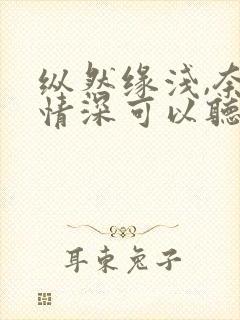 纵然缘浅,奈
情深可以聽
耳東兔子